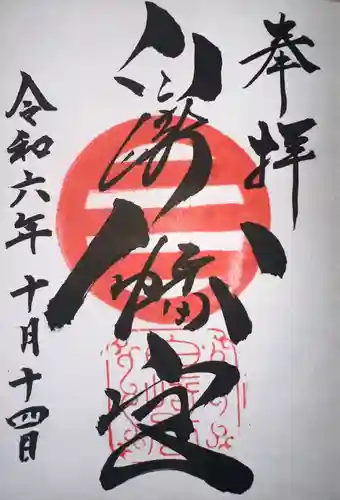 奉拝
八幡宮
令和六年十月十四日